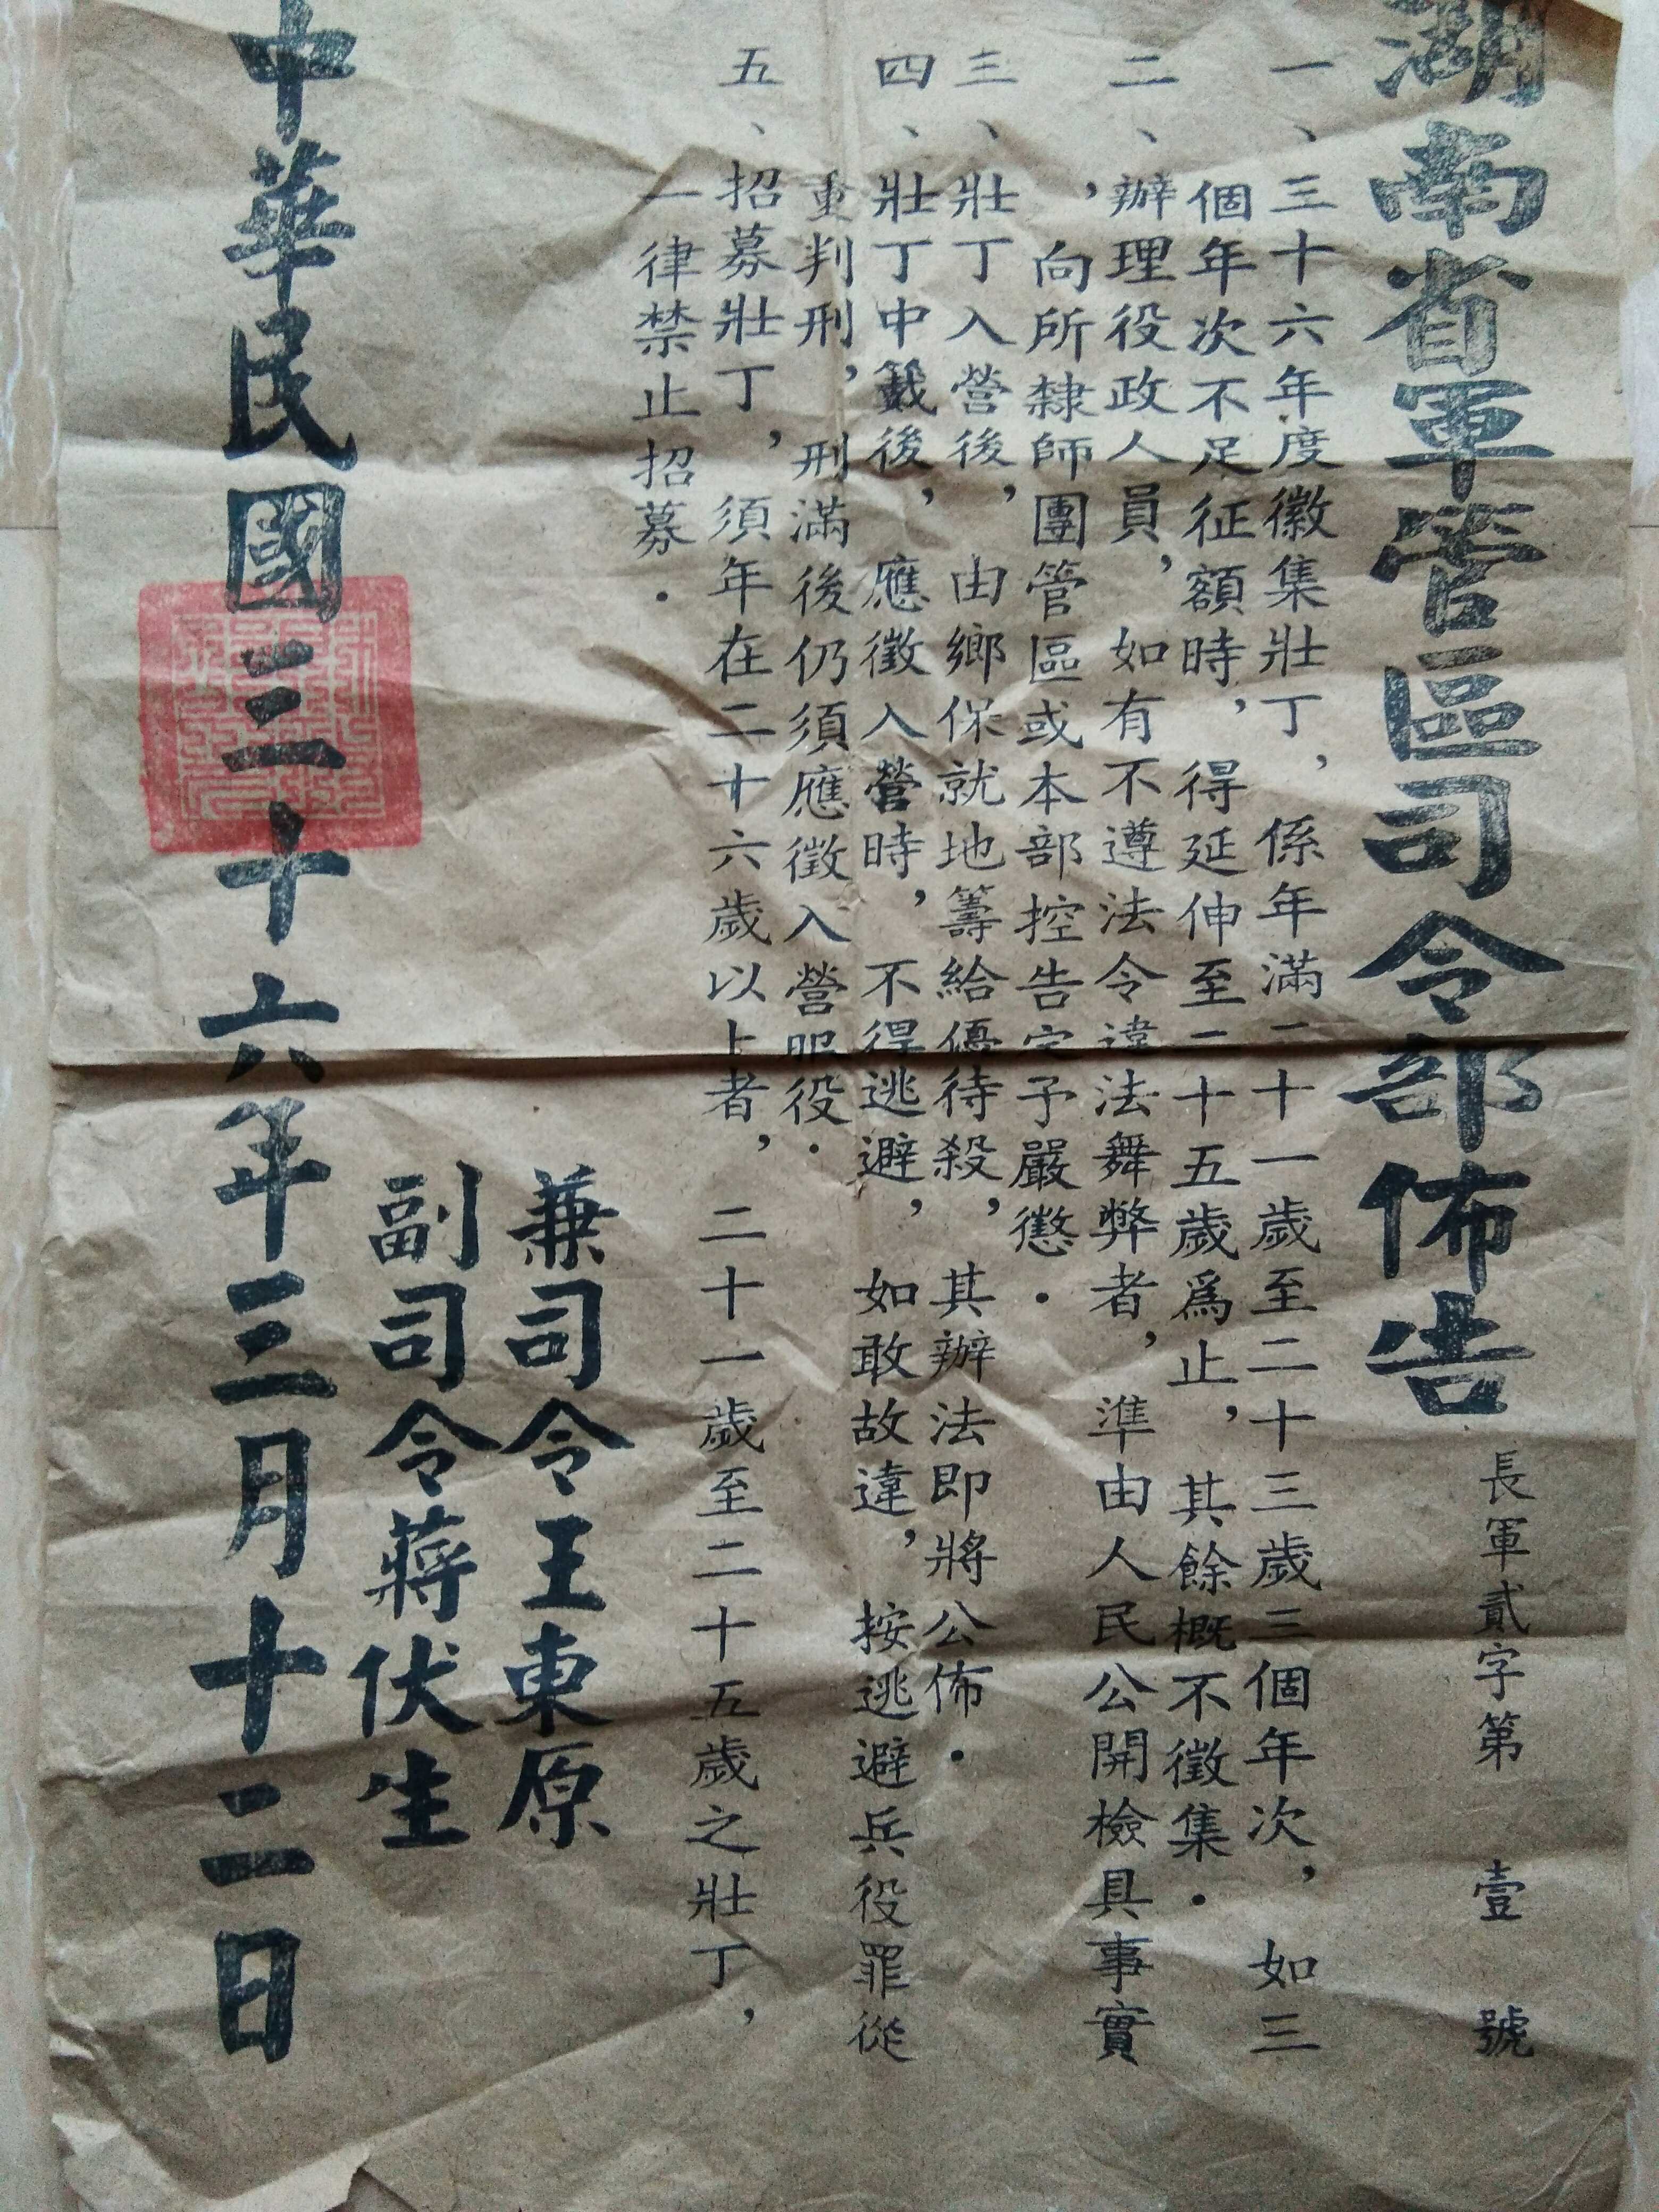 湖南省軍管區司令部佈告
長軍貳字第 壹 號
一、三十六年度徵集壯丁，係年滿二十一歲至二十三歲三個年次，如三
個年次不足征額時，得延伸至二十五歲爲止，其餘概不徵集．
二、辦理役政人員，如有不遵法令違法舞弊者，準由人民公開檢具事實
，向所隸師團管區或本部控告定予嚴懲．
三、壯丁入營後，由鄉保就地籌給優待殺，其辦法即將公佈．
四、壯丁中籤後，應徵入營時，不得逃避，如敢故違，按逃避兵役罪從
重判刑，刑滿後仍須應徵入營服役．
五、招募壯丁，須年在二十六歲以上者，二十一歲至二十五歲之壯丁，
一律禁止招募．
兼司令王東原
副司令蔣伏生
中華民國三十六年三月十二日